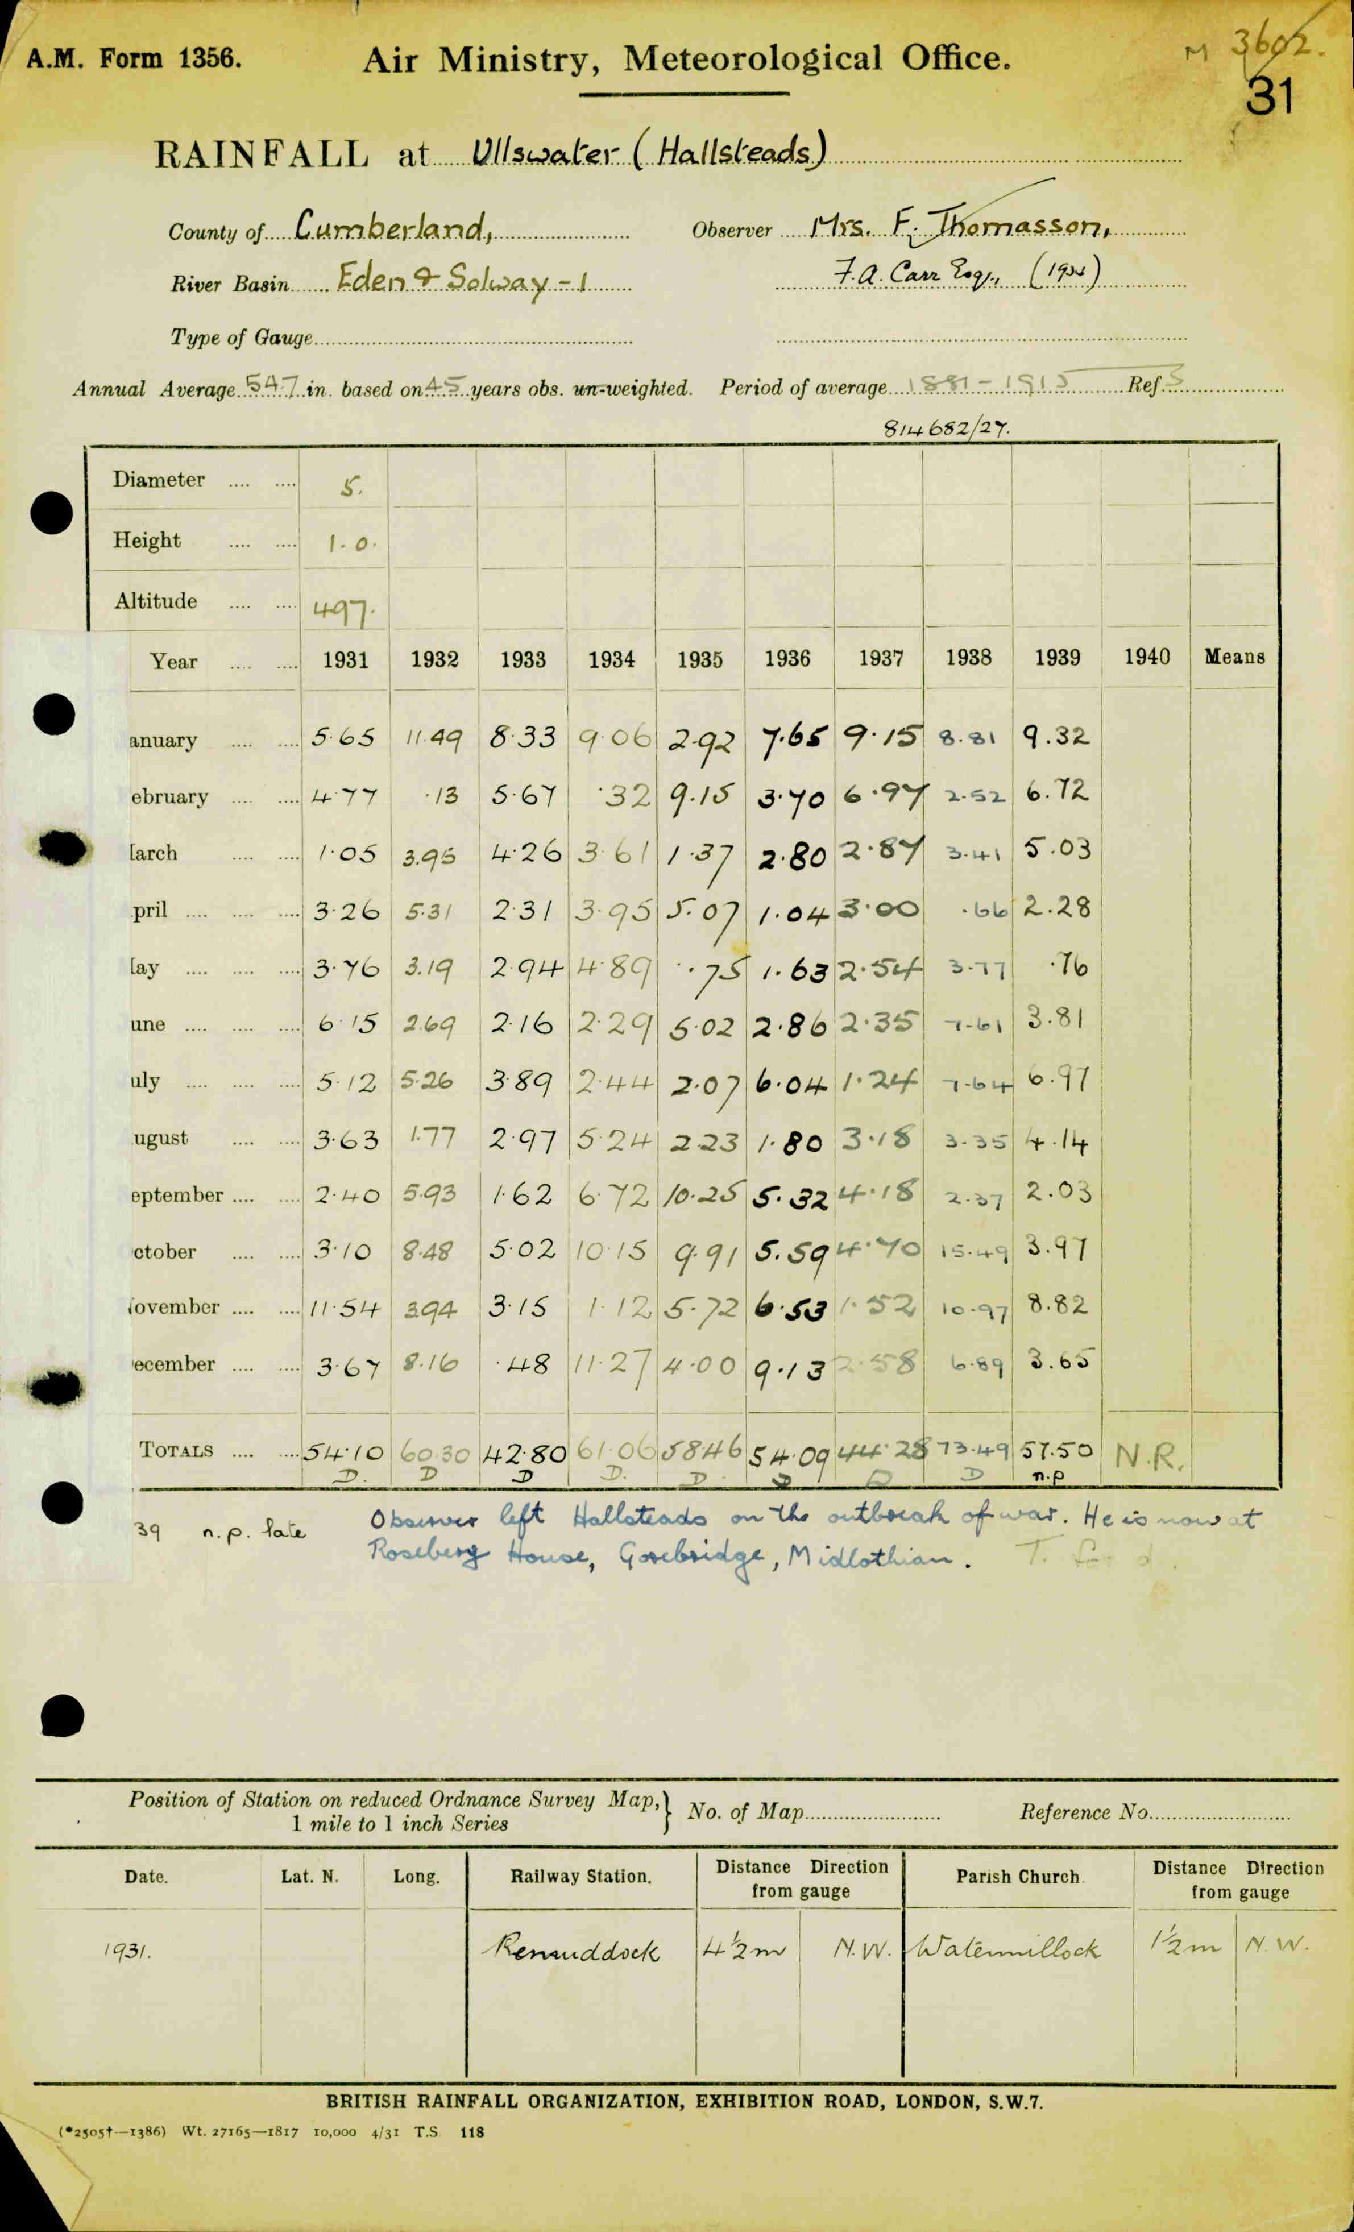 A.M. Form 1356.
Air Ministry, Meteorological Office.
M 3602.
31
RAINFALL at Ullswater (Hallsteads)
County of Cumberland, Observer Mrs. F. Thomasson,
River Basin Eden & Solway - 1 F.A. Carr Esq., (1934)
Type of Gauge
Annual Average 54.7 in. based on 45 years obs. un-weighted. Period of average 1881-1915 Ref. S
814682/27.
Diameter 5.
Height 1.0.
Altitude 497.
Year 1931 1932 1933 1934 1935 1936 1937 1938 1939 1940 Means
anuary 5.65 11.49 8.33 9.06 2.92 7.65 9.15 8.81 9.32
ebruary 4.77 .13 5.67 .32 9.15 3.70 6.97 2.52 6.72
arch 1.05 3.95 4.26 3.61 1.37 2.80 2.87 3.41 5.03
pril 3.26 5.31 2.31 3.95 5.07 1.04 3.00 .66 2.28
ay 3.76 3.19 2.94 4.89 .75 1.63 2.54 3.77 .76
une 6.15 2.69 2.16 2.29 5.02 2.86 2.35 7.61 3.81
uly 5.12 5.26 3.89 2.44 2.07 6.04 1.24 7.64 6.97
ugust 3.63 1.77 2.97 5.24 2.23 1.80 3.18 3.35 4.14
eptember 2.40 5.93 1.62 6.72 10.25 5.32 4.18 2.37 2.03
ctober 3.10 8.48 5.02 10.15 9.91 5.59 4.70 15.49 3.97
ovember 11.54 3.94 3.15 1.12 5.72 6.53 1.52 10.97 8.82
ecember 3.67 8.16 .48 11.27 4.00 9.13 2.58 6.89 3.65
TOTALS 54.10 60.30 42.80 61.06 58.46 54.09 44.28 73.49 57.50 N.R.
D. D D D. D. D D D n.p
39 n.p. late Observer left Hallsteads on the outbreak of war. He is now at
Rosebery House, Gorebridge, Midlothian.
Position of Station on reduced Ordnance Survey Map,} No. of Map Reference No.
1 mile to 1 inch Series
Date. Lat. N. Long. Railway Station. Distance Direction from gauge Parish Church. Distance Direction from gauge
1931. Penruddock 4½m N.W. Watermillock 1½m N.W.
BRITISH RAINFALL ORGANIZATION, EXHIBITION ROAD, LONDON, S.W.7.
(*2505†—1386) Wt. 27165—1817 10,000 4/31 T.S. 118